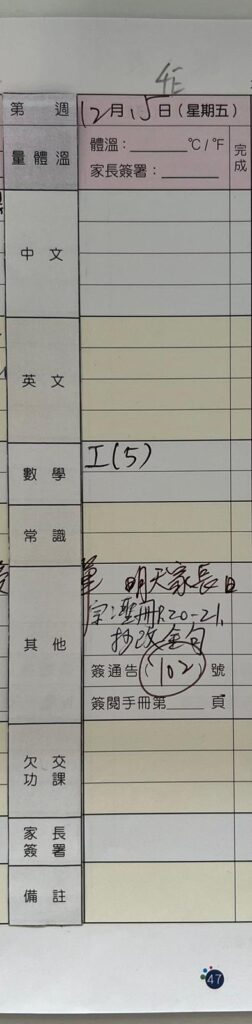 4E
第 週 12月15日(星期五)
量體溫 體溫:______°C/°F 完成
家長簽署:______
中文
英文
數學 I(5)
常識
單 明天家長日
宗:灋冊P.20-21,
其他 抄改全句
簽通告(102)號
簽閱手冊第____頁
欠交功課
家長簽署
備註
47